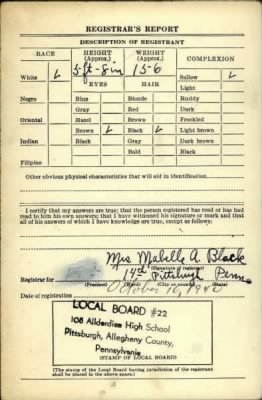 REGISTRAR'S REPORT
DESCRIPTION OF REGISTRANT
RACE HEIGHT (Approx.) WEIGHT (Approx.) COMPLEXION
5 ft - 8 in 156
White ✓ EYES HAIR Sallow ✓
Light
Negro Blue Blonde Ruddy
Gray Red Dark
Oriental Hazel Brown Freckled
Brown ✓ Black ✓ Light brown
Indian Black Gray Dark brown
Bald Black
Filipino
Other obvious physical characteristics that will aid in identification
I certify that my answers are true; that the person registered has read or has had
read to him his own answers; that I have witnessed his signature or mark and that
all of his answers of which I have knowledge are true, except as follows:
Mrs Mabelle A. Black
(Signature of registrar)
Registrar for 14th Pittsburgh Penna
(Precinct) (Ward) (City or county) (State)
Date of registration October 16, 1940
LOCAL BOARD #22
108 Allderdice High School
Pittsburgh, Allegheny County,
Pennsylvania
(STAMP OF LOCAL BOARD)
(The stamp of the Local Board having jurisdiction of the registrant
shall be placed in the above space.)